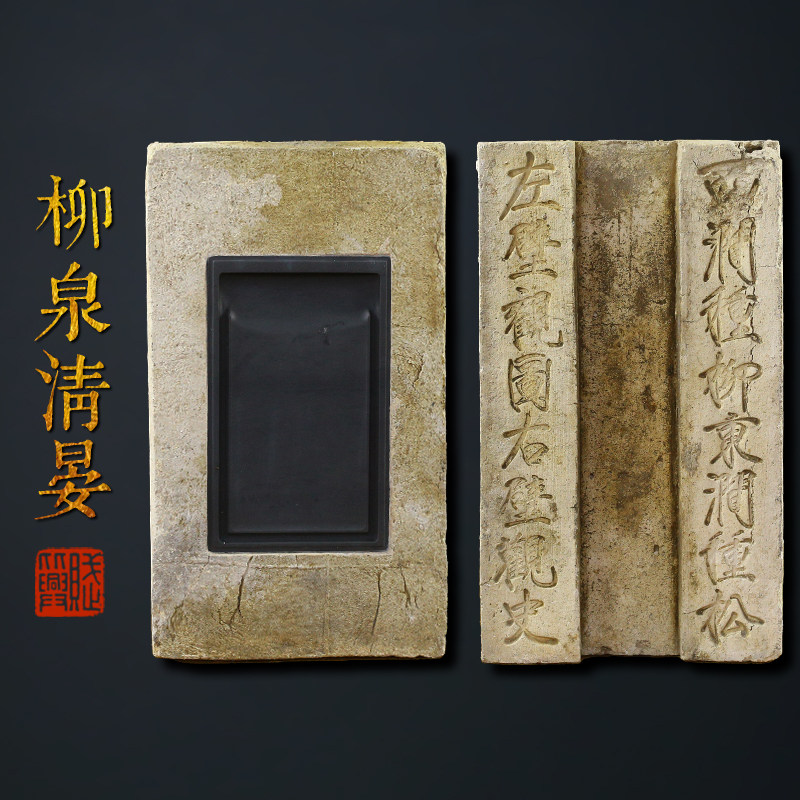 柳泉清晏
西澗種柳東澗種松
左壁觀圖右壁觀史